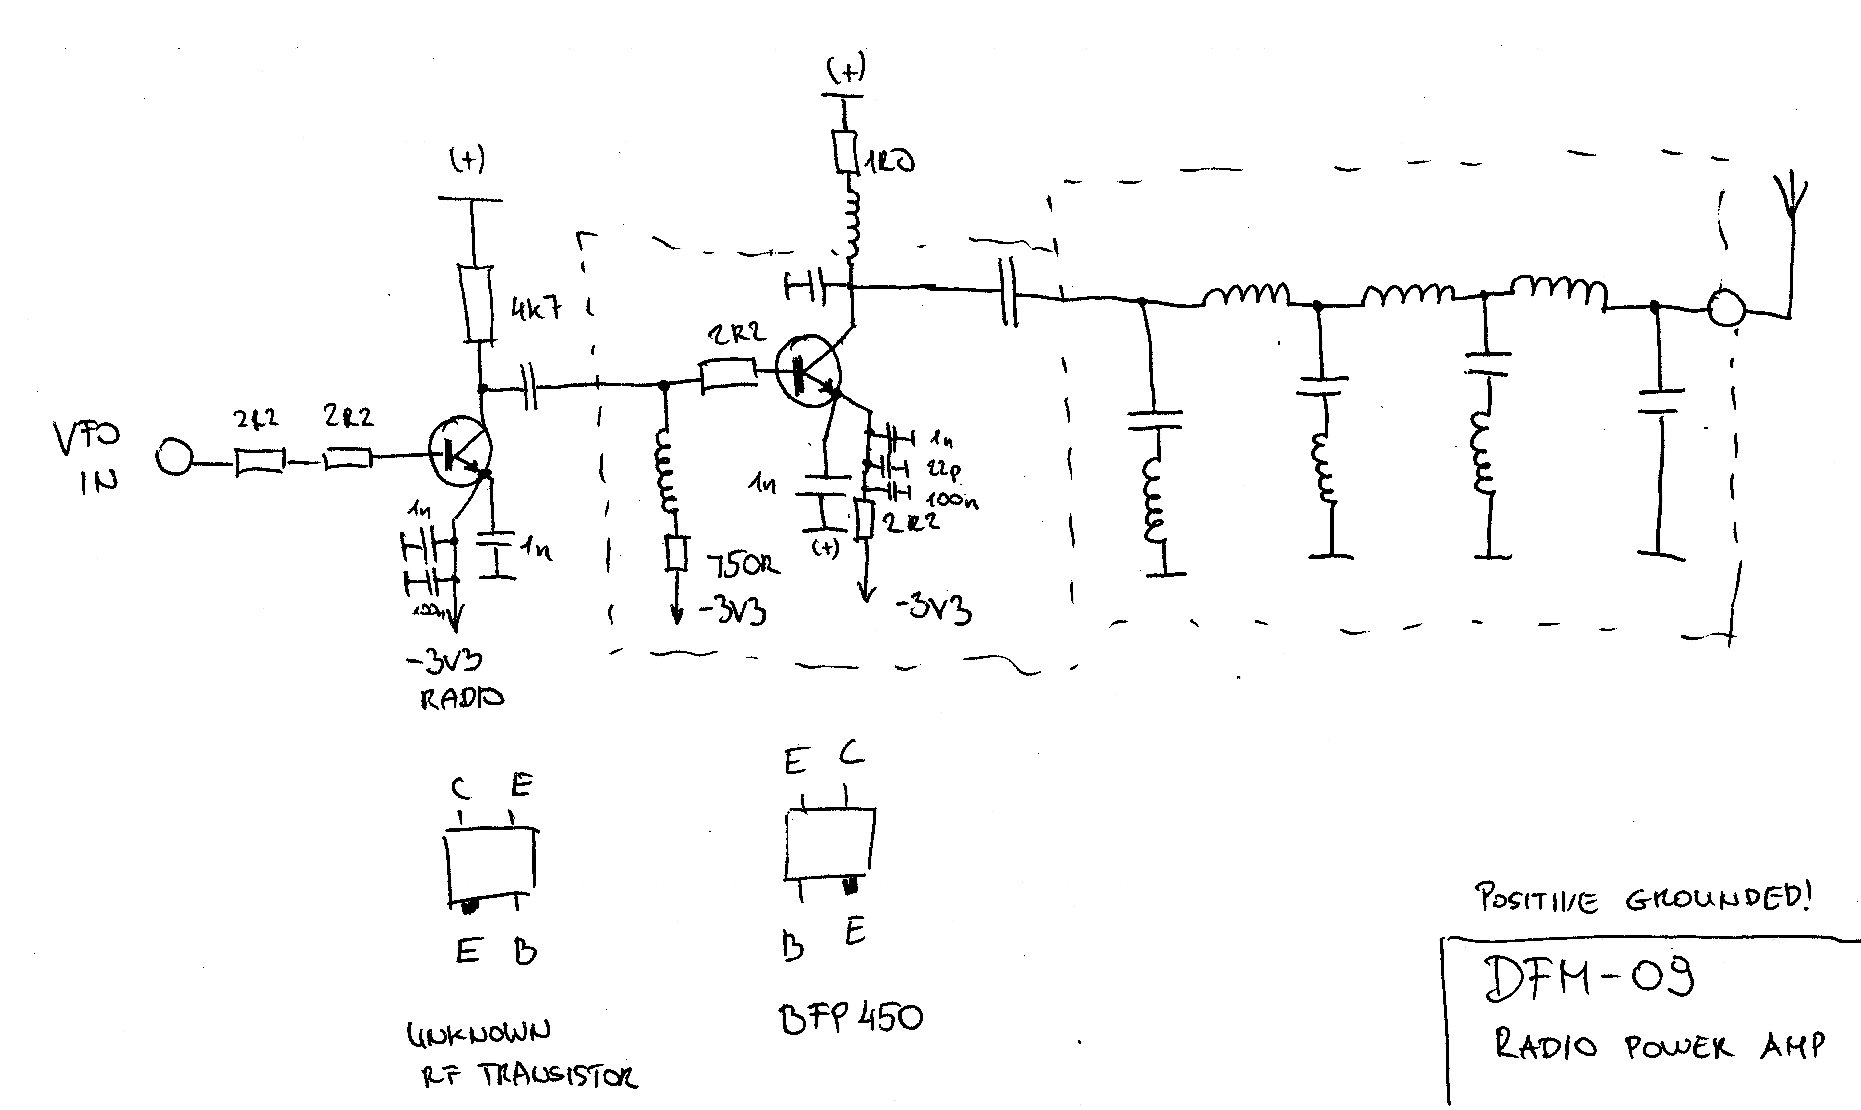 (+)
1R0
(+)
4k7
2R2
VFO
IN
2R2
2R2
1n
1n
100n
-3V3
RADIO
750R
-3V3
1n
(+)
1n
22p
100n
2R2
-3V3
C E
E B
UNKNOWN
RF TRANSISTOR
E C
B E
BFP450
POSITIVE GROUNDED!
DFM-09
RADIO POWER AMP